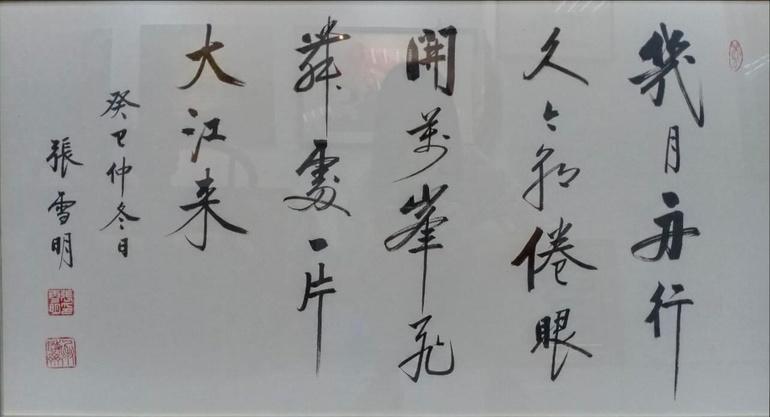 幾月舟行
久今朝倦眼
開萬峯飛
舞處一片
大江来
癸巳仲冬日
張雪明